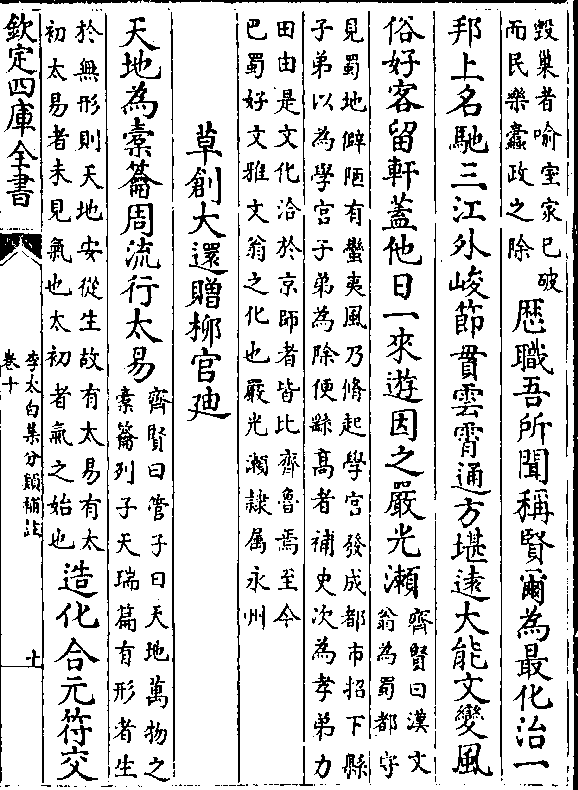 毀巢者喻室家已破
而民樂蠧政之除
歴職吾所聞稱賢爾為最化治一
邦上名馳三江外峻節貫雲霄通方堪逺大能文變風
俗好客留軒葢他日一來遊因之嚴光瀬
齊賢曰漢文
翁為蜀都守
見蜀地僻陋有蠻夷風乃脩起學官發成都市招下縣
子弟以為學官子弟為除便繇髙者補吏次為孝弟力
田由是文化洽於京師者皆比齊魯焉至今
巴蜀好文雅文翁之化也嚴光瀬隷属永州
草創大還贈柳官廸
天地為槖籥周流行太易
齊賢曰管子曰天地萬物之
槖籥列子天瑞篇有形者生
於無形則天地安從生故有太易有太
初太易者未見氣也太初者氣之始也
造化合元符交
欽定四庫全書
李太白集分類補註
卷十
十